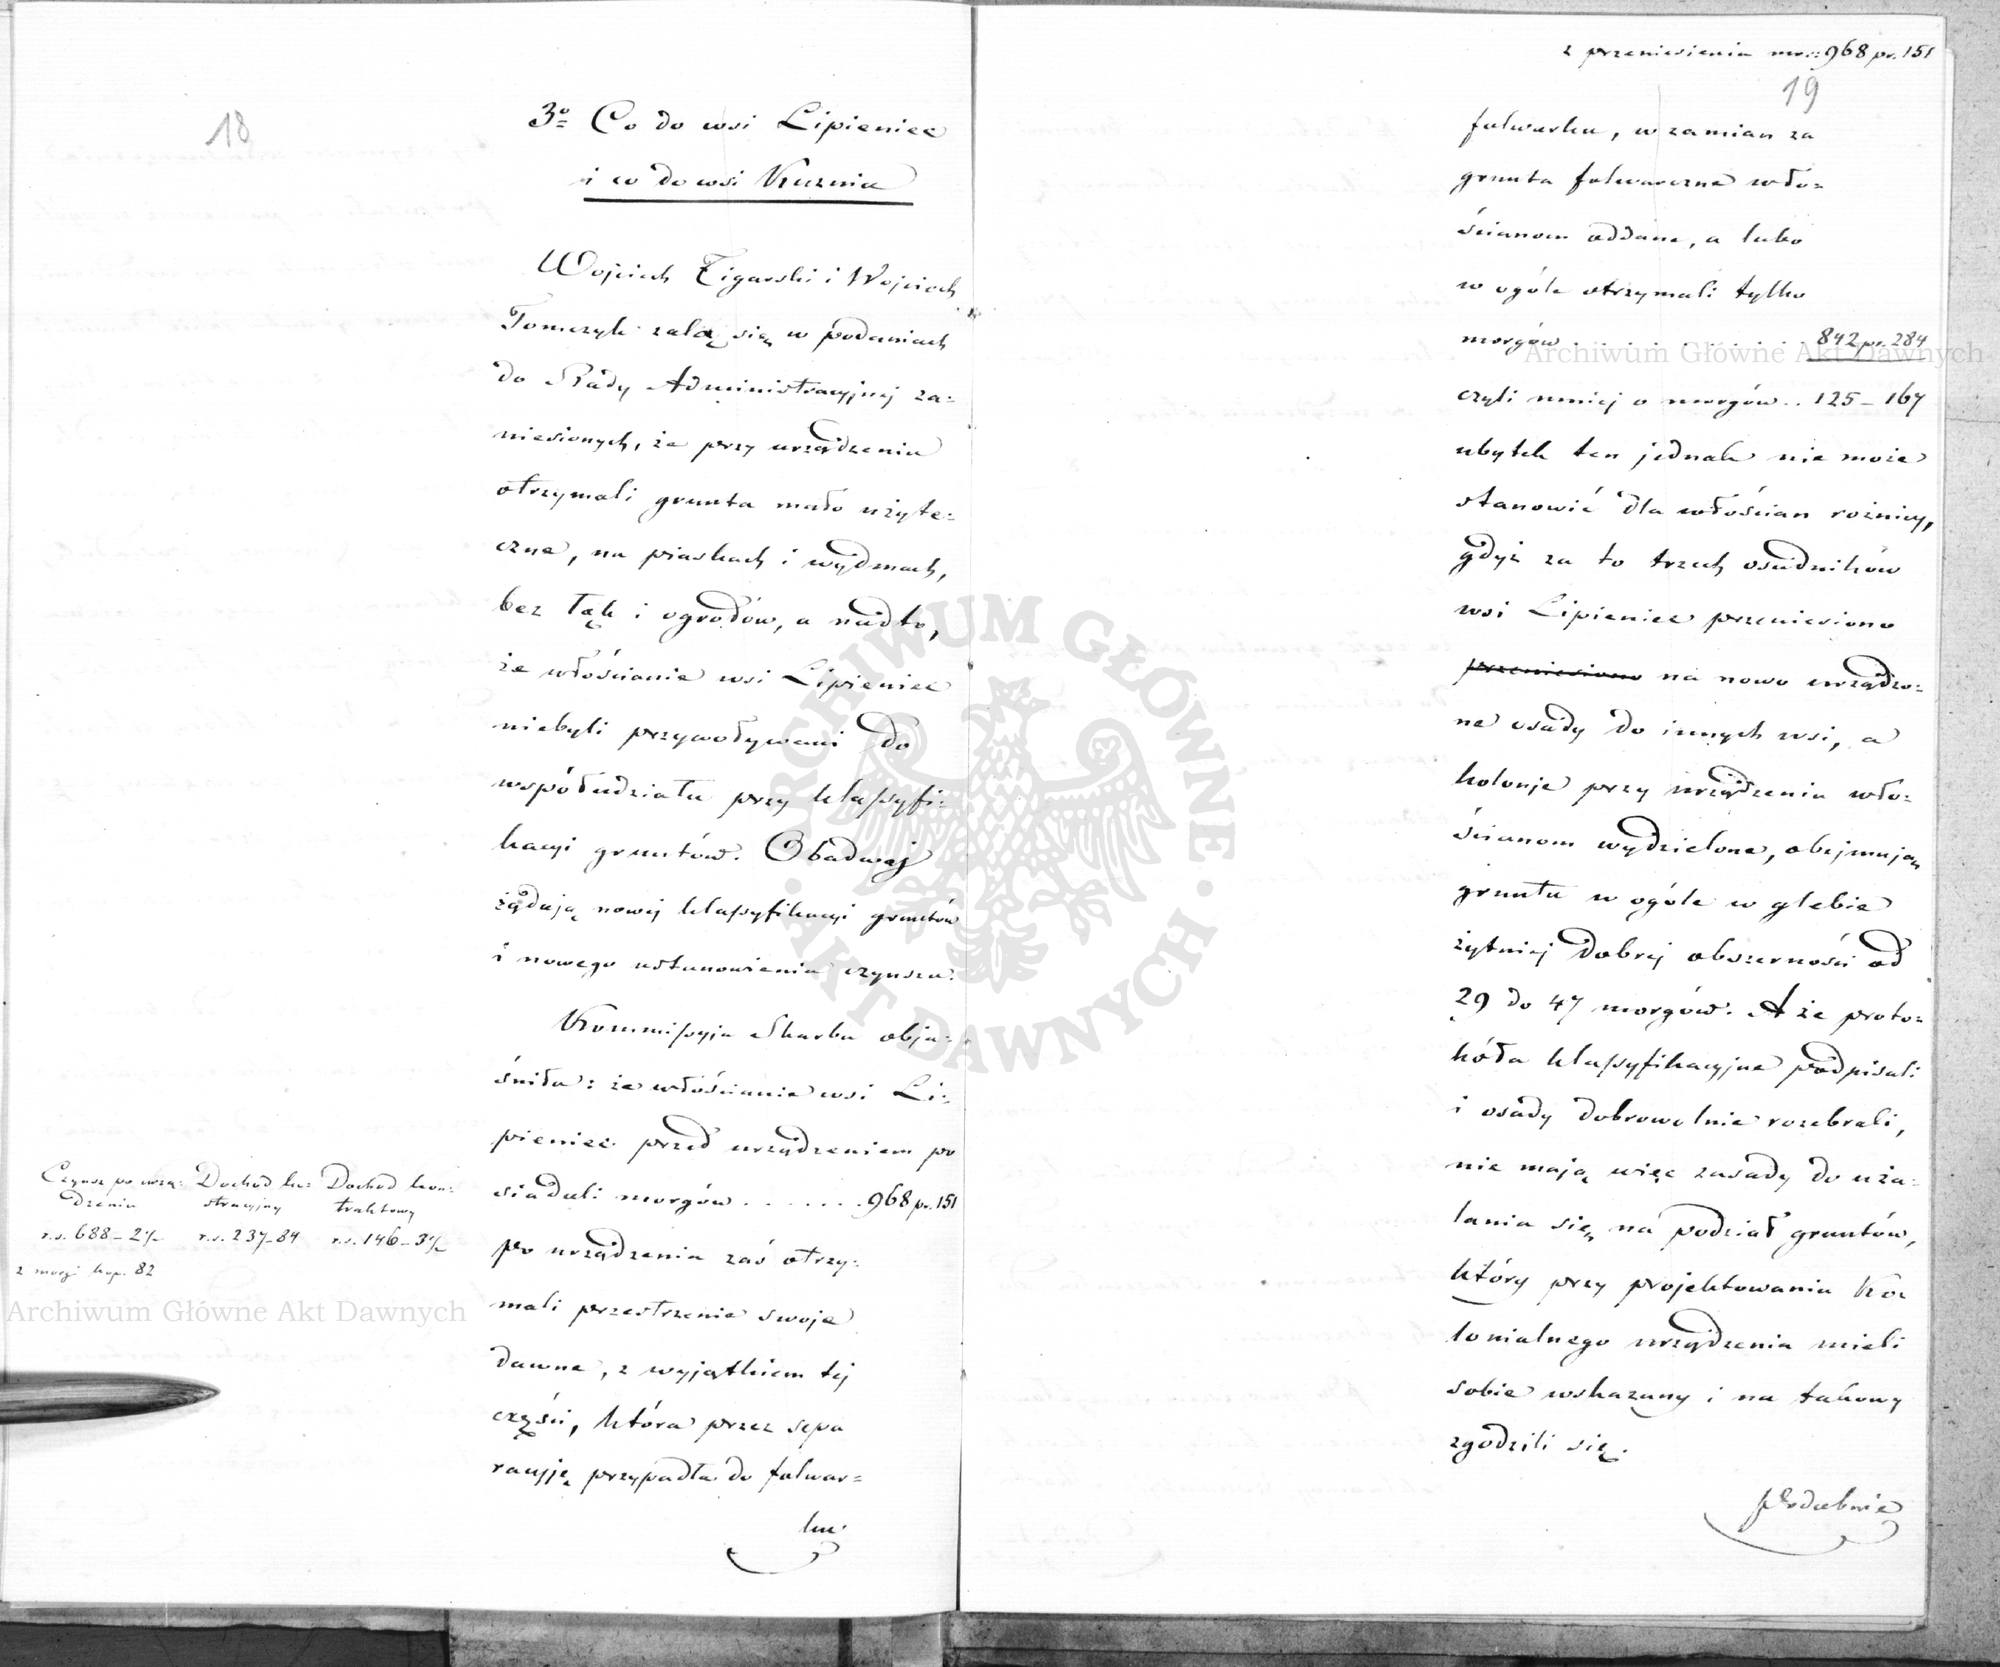 18
3º Co do wsi Lipieniec
i co do wsi Kuznia
Wojciech Cigarski i Wojciech
Tomczyk żalą się w podaniach
do Rady Administracyjnej za=
niesionych, że przy urządzeniu
otrzymali grunta mało użyte=
czne, na piaskach i wydmach,
bez łąk i ogrodów, a nadto,
że włościanie wsi Lipieniec
niebyli przywoływani do
współudziału przy klassyfi=
kacyi gruntów. Obadwaj
żądają nowej klassyfikacyi gruntów
i nowego ustanowienia czynszu.
Kommissyja Skarbu obja=
śniła: że włościanie wsi Li=
pieniec przed urządzeniem po
siadali morgów . . . . . . 968 pr. 151
po urządzeniu zaś otrzy=
mali przestrzenie swoje
dawne, z wyjątkiem tej
części, która przez sepa
racyję przypadła do folwar=
ku
Czynsz po urzą=
dzeniu
r.s. 688 – 2½
z morgi kop. 82
Dochod lu=
stracyjny
r.s. 237–84
Dochod kon=
traktowy
r.s. 146–3½
Archiwum Główne Akt Dawnych
z przeniesienia mor.: 968 pr. 151
19
folwarku, w zamian za
grunta folwarczne wło=
ścianom oddane, a lubo
w ogóle otrzymali tylko
morgów . . . . . . . . . 842 pr. 284
czyli mniej o morgów . . 125 – 167
ubytek ten jednak nie może
stanowić dla włościan rożnicy,
gdyż za to trzech osadników
wsi Lipieniec przeniesiono
przeniesiono na nowo urządzo=
ne osady do innych wsi, a
kolonje przy urządzeniu wło=
ścianom wydzielone, obejmują
gruntu w ogóle w glebie
żytniej dobrej obszerności od
29 do 47 morgów. A że proto=
kóła klassyfikacyjne podpisali
i osady dobrowolnie rozebrali,
nie mają więc zasady do uża=
lania się na podział gruntów,
który przy projektowaniu Ko=
lonialnego urządzenia mieli
sobie wskazany i na takowy
zgodzili się.
Podobnie
Archiwum Główne Akt Dawnych
ARCHIWUM GŁÓWNE
· AKT DAWNYCH ·